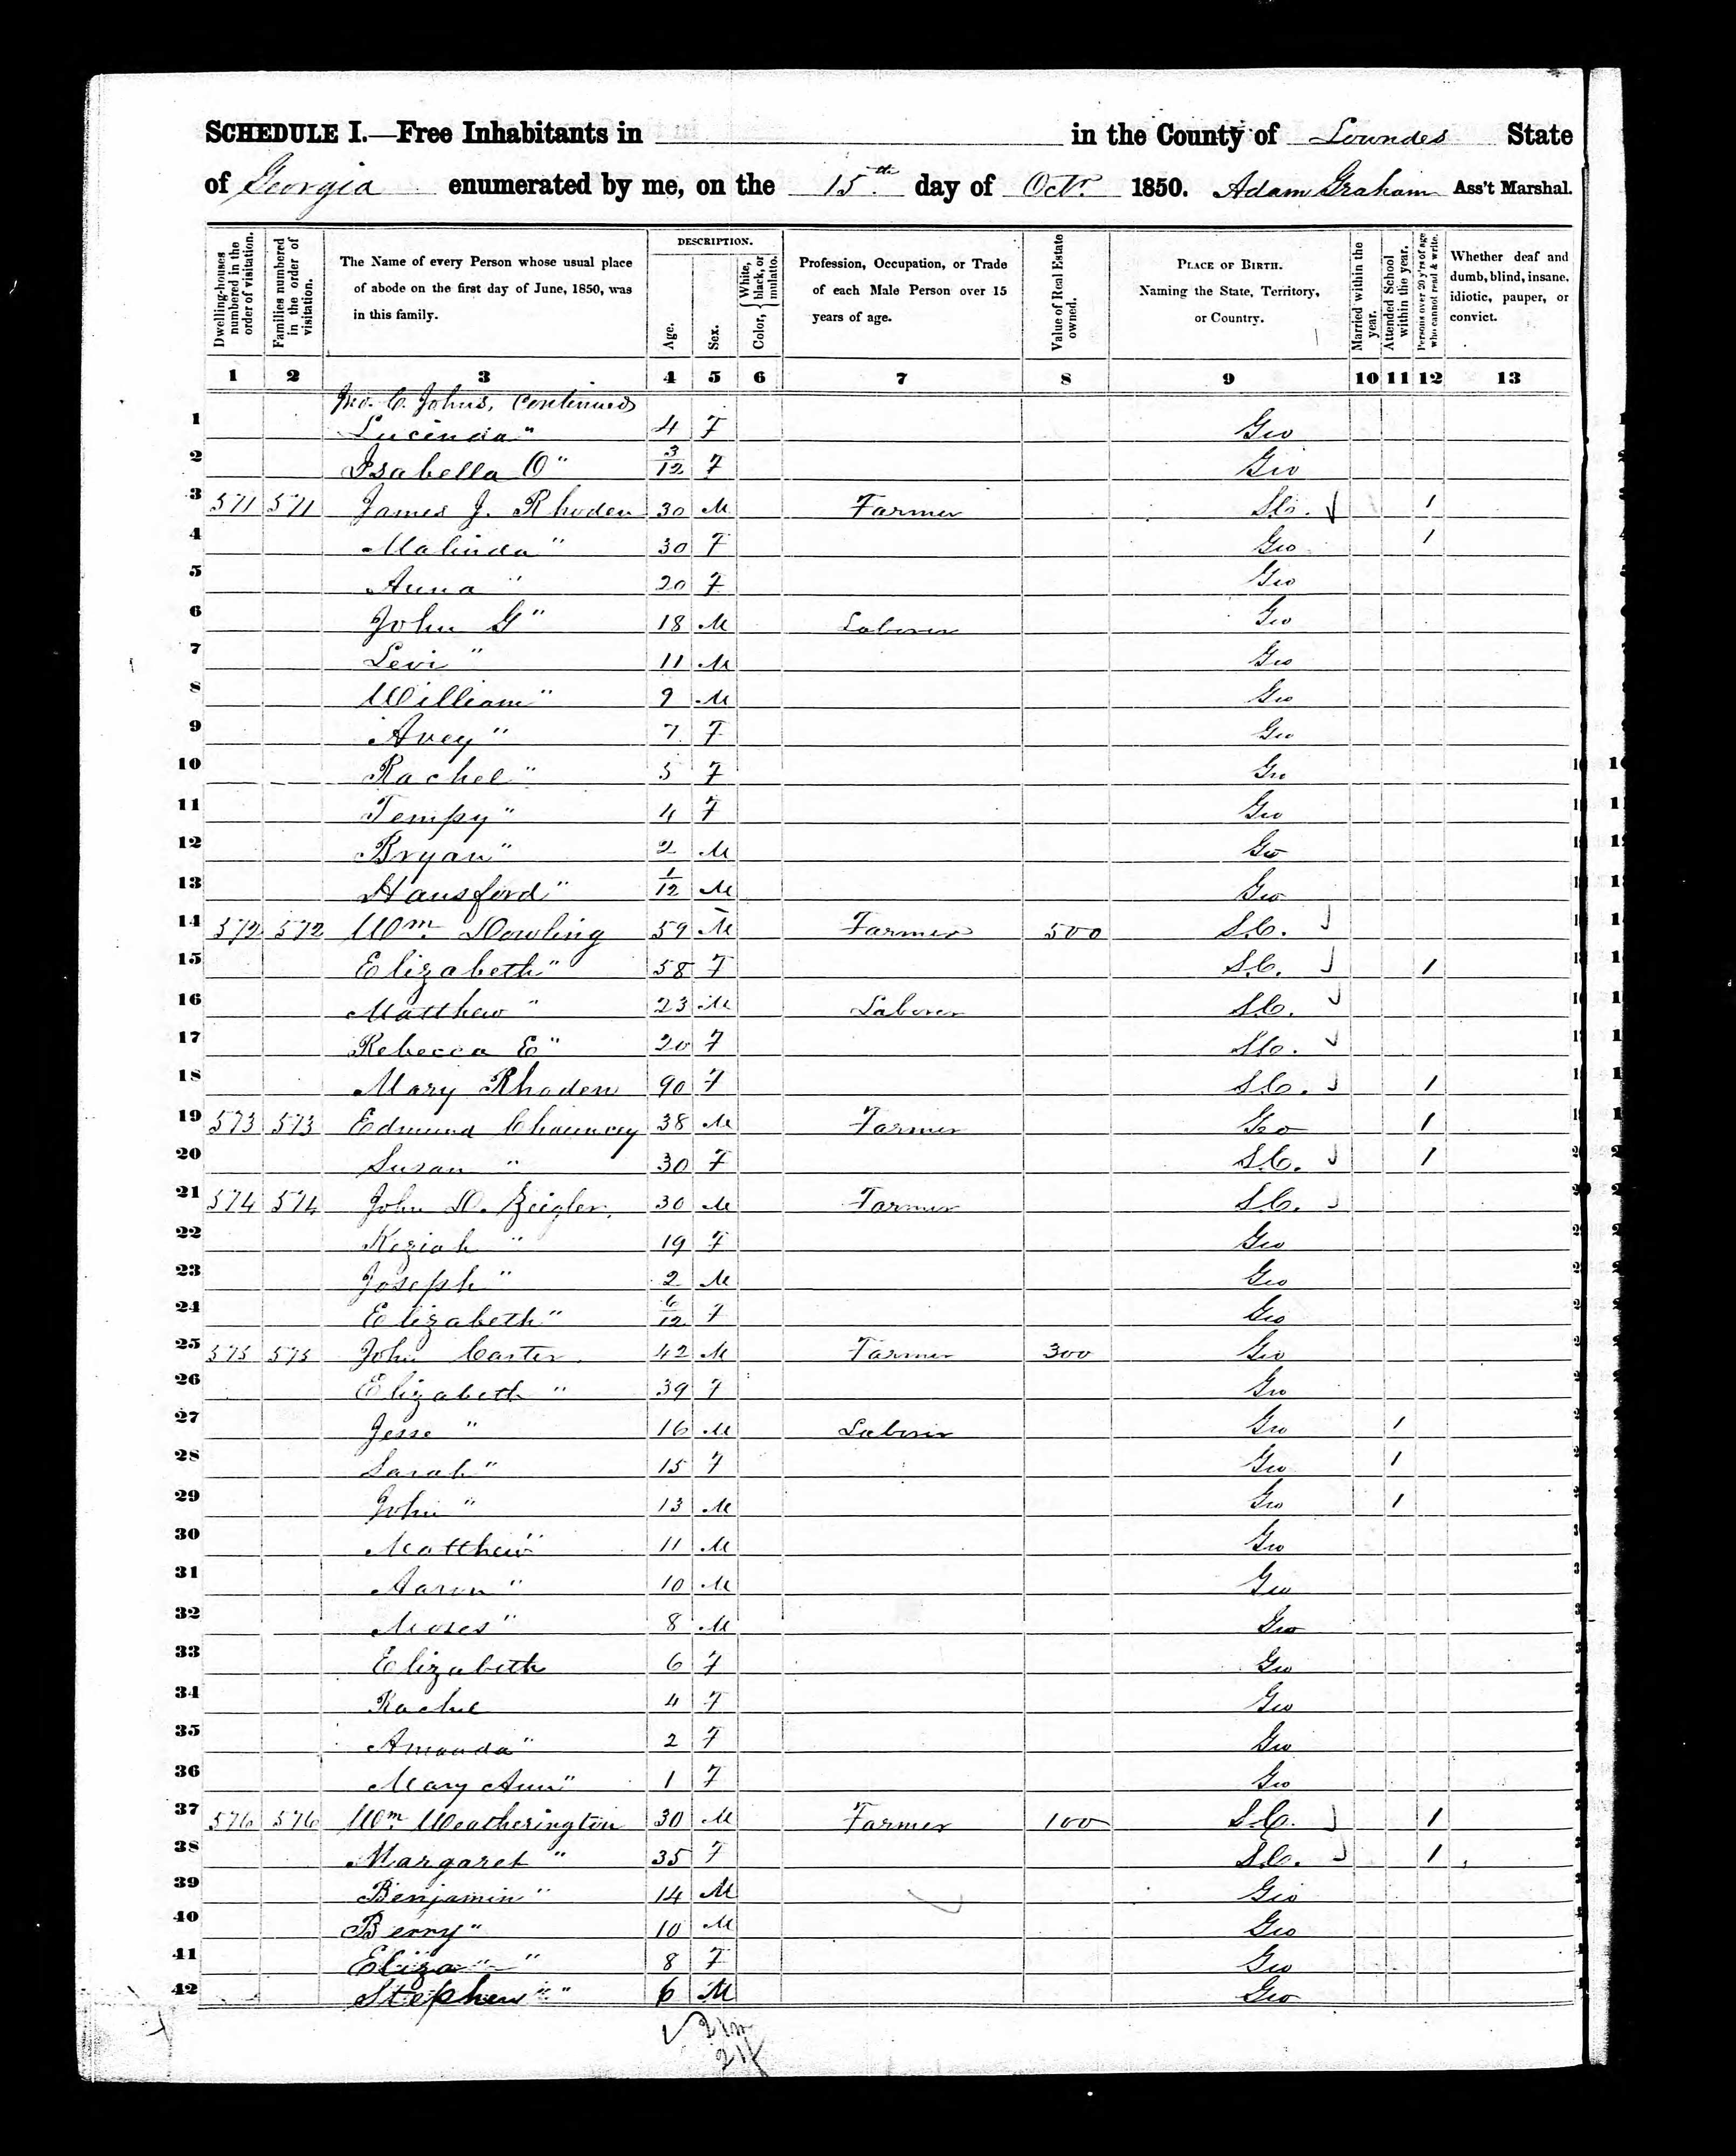 SCHEDULE I.—Free Inhabitants in in the County of Lowndes State
of Georgia enumerated by me, on the 15th day of Octr. 1850. Adam Graham Ass't Marshal.
Dwelling-houses numbered in the order of visitation.
Families numbered in the order of visitation.
The Name of every Person whose usual place of abode on the first day of June, 1850, was in this family.
DESCRIPTION.
Age.
Sex.
Color, { White, black, or mulatto.
Profession, Occupation, or Trade of each Male Person over 15 years of age.
Value of Real Estate owned.
PLACE OF BIRTH. Naming the State, Territory, or Country.
Married within the year.
Attended School within the year.
Persons over 20 y'rs of age who cannot read & write.
Whether deaf and dumb, blind, insane, idiotic, pauper, or convict.
1 2 3 4 5 6 7 8 9 10 11 12 13
Jno. C. Johns, Continued
1 Lucinda " 4 F Geo
2 Isabella O " 3/12 F Geo
3 571 571 James J. Rhoden 30 M Farmer S.C. 1
4 Malinda " 30 F Geo 1
5 Anna " 20 F Geo
6 John G " 18 M Laborer Geo
7 Levi " 11 M Geo
8 William " 9 M Geo
9 Avey " 7 F Geo
10 Rachel " 5 F Geo
11 Tempy " 4 F Geo
12 Bryan " 2 M Geo
13 Hansford " 1/12 M Geo
14 572 572 Wm. Dowling 59 M Farmer 500 S.C.
15 Elizabeth " 58 F S.C. 1
16 Matthew " 23 M Laborer S.C.
17 Rebecca E " 20 F S.C.
18 Mary Rhoden 90 F S.C. 1
19 573 573 Edmund Chauncey 38 M Farmer Geo 1
20 Susan " 30 F S.C. 1
21 574 574 John D. Zeigler. 30 M Farmer S.C.
22 Keziah " 19 F Geo
23 Joseph " 2 M Geo
24 Elizabeth " 6/12 F Geo
25 575 575 John Carter. 42 M Farmer 300 Geo
26 Elizabeth " 39 F Geo
27 Jesse " 16 M Laborer Geo 1
28 Sarah " 15 F Geo 1
29 John " 13 M Geo 1
30 Matthew " 11 M Geo
31 Aaron " 10 M Geo
32 Moses " 8 M Geo
33 Elizabeth 6 F Geo
34 Rachel 4 F Geo
35 Amanda " 2 F Geo
36 Mary Ann " 1 F Geo
37 576 576 Wm. Weatherington 30 M Farmer 100 S.C. 1
38 Margaret " 35 F S.C. 1
39 Benjamin " 14 M Geo
40 Berry " 10 M Geo
41 Eliza " 8 F Geo
42 Stephen " 6 M Geo